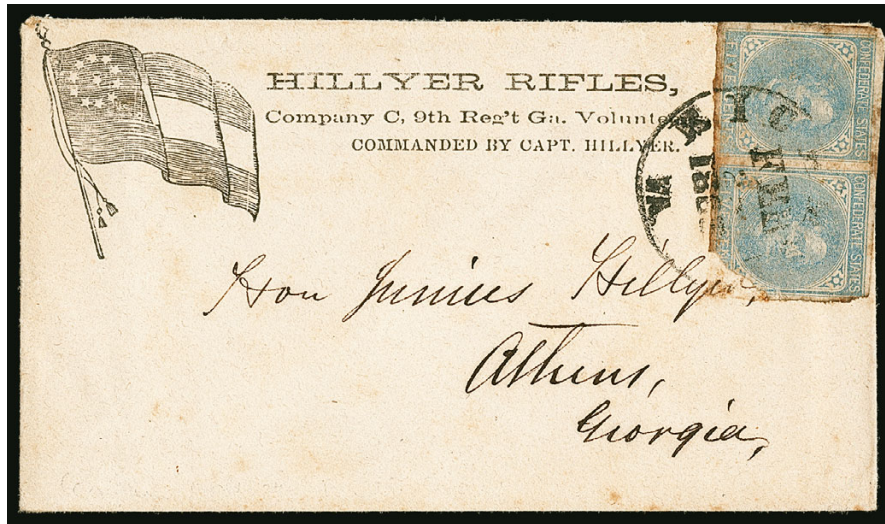 HILLYER RIFLES,
Company C, 9th Reg't Ga. Volunteers
COMMANDED BY CAPT. HILLYER.
CONFEDERATE STATES
CONFEDERATE STATES
VA.
Hon Junius Hillyer,
Athens,
Georgia,